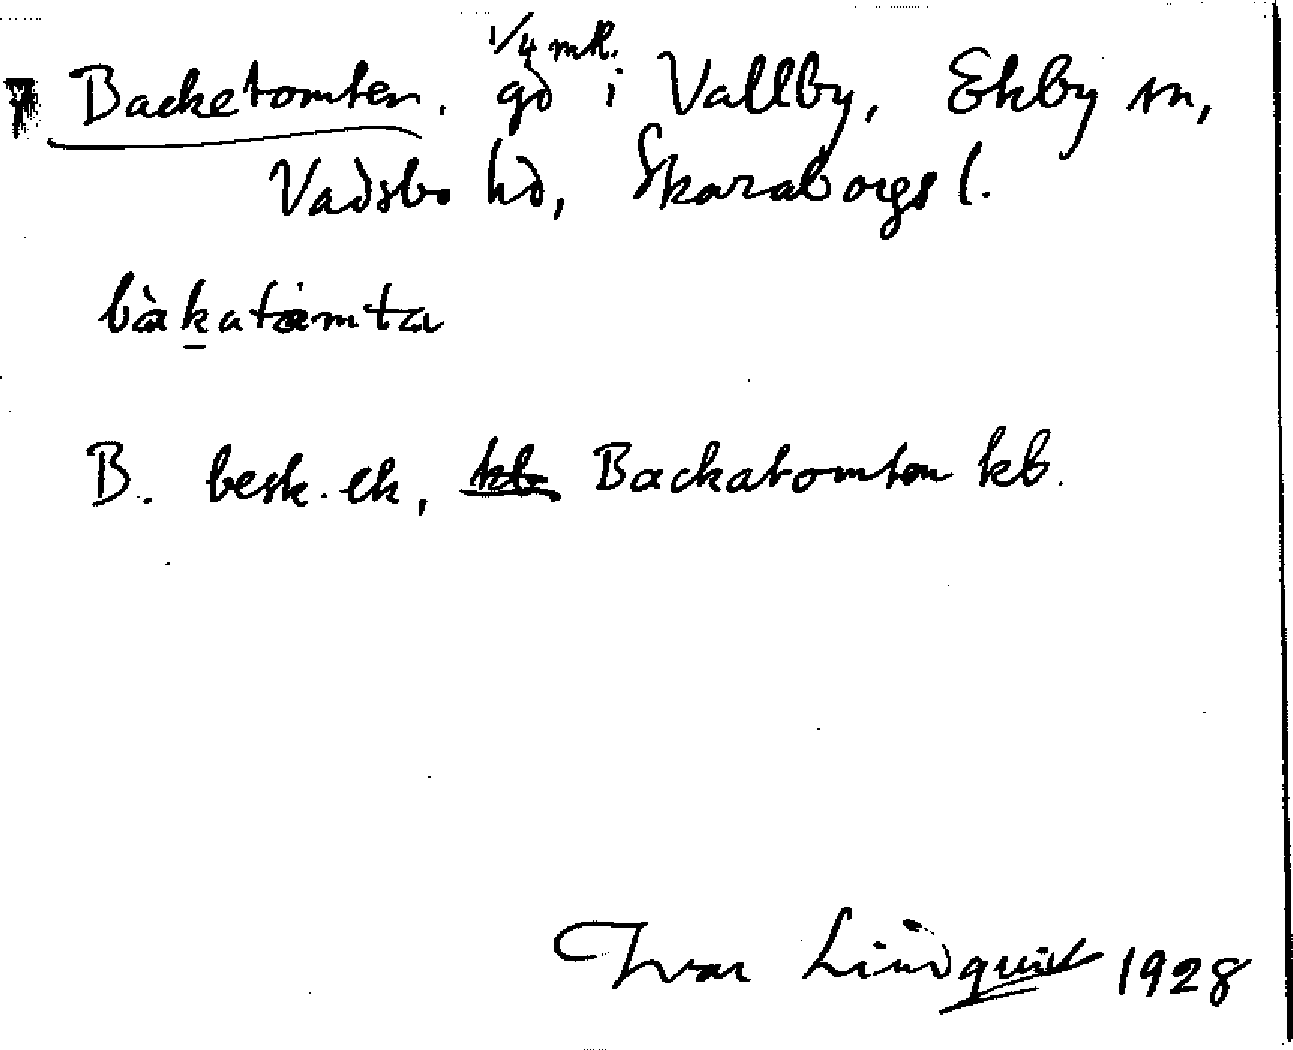 Backetomten. gd 1/4 mtl. i Vallby, Ekby sn,
Vadsbo hd, Skaraborgs l.
bàkatåmta
B. besk. ek, kb Backatomten kb.
Ivar Lindquist 1928